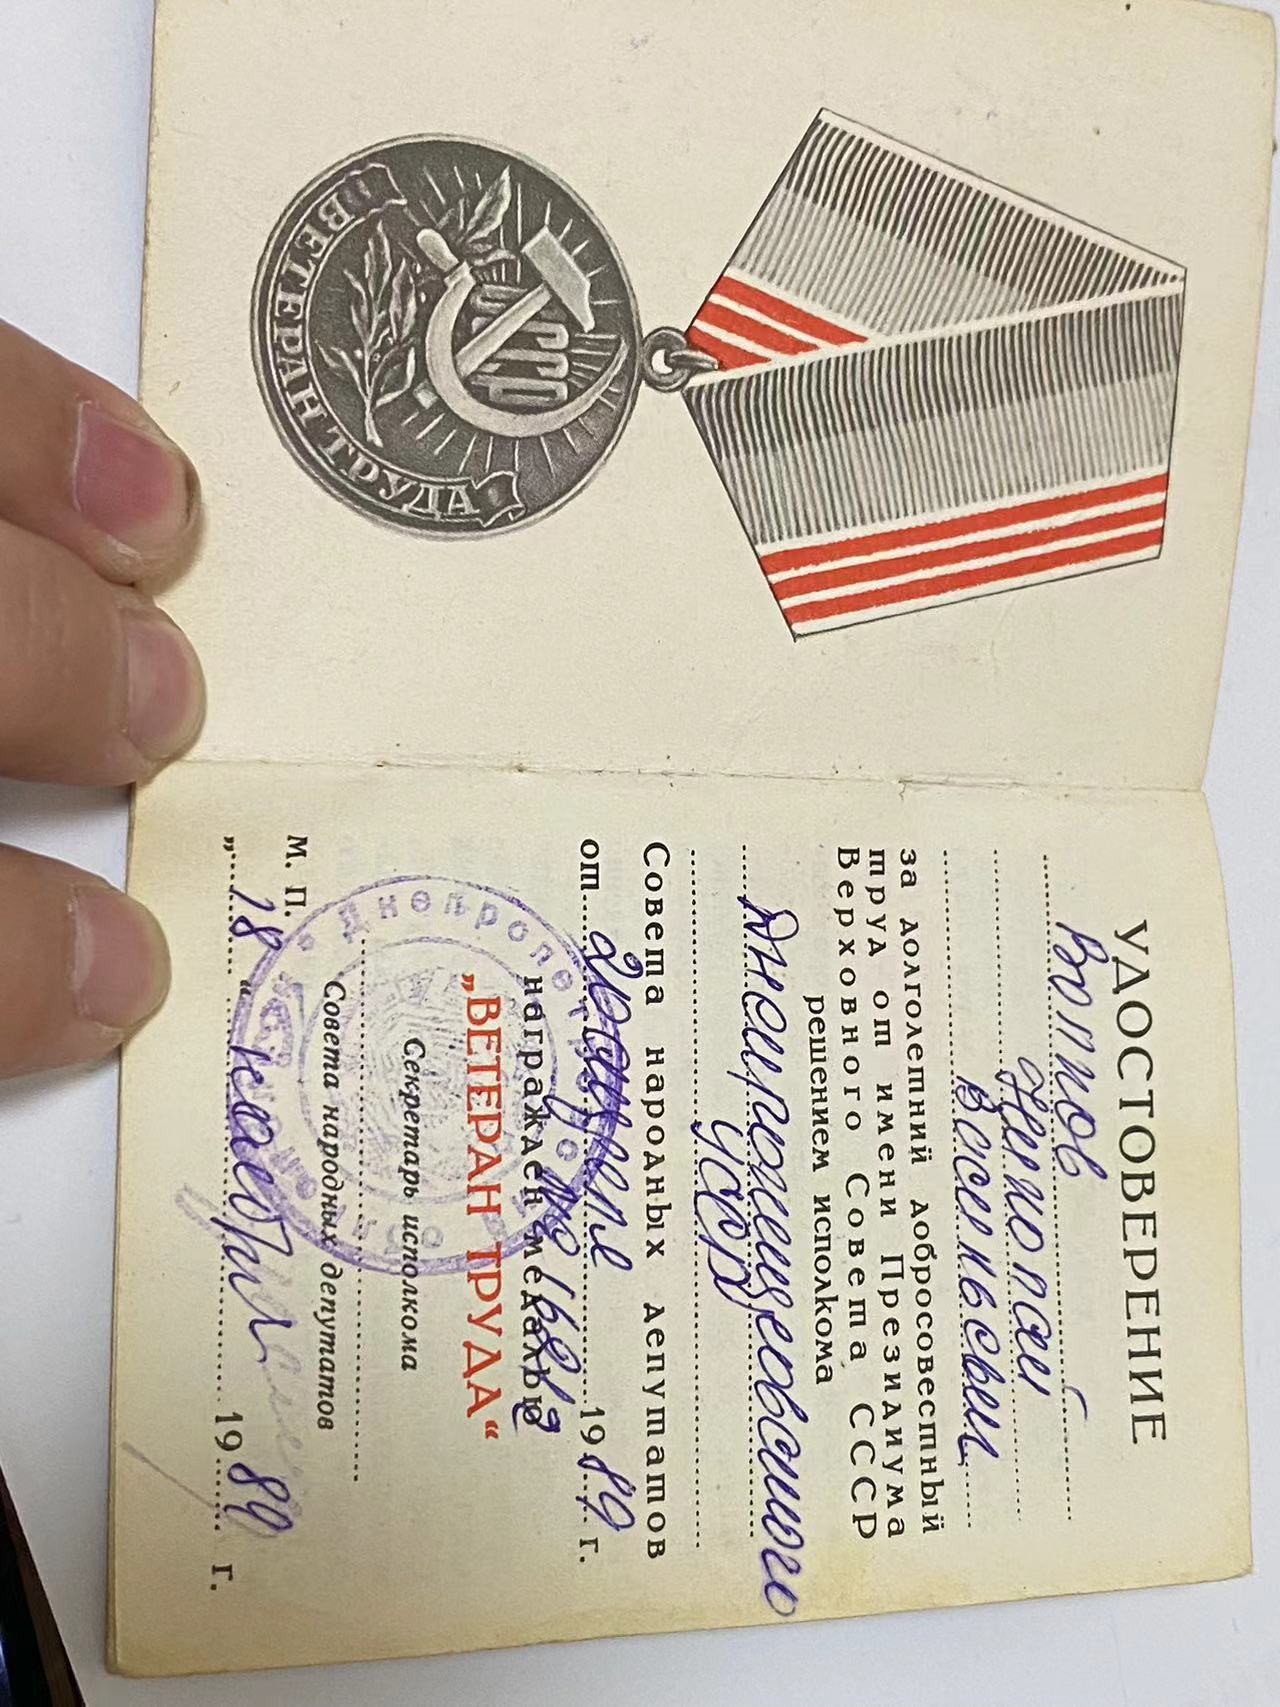 ВЕТЕРАН ТРУДА
СССР
УДОСТОВЕРЕНИЕ
Николай
Васильевич
за долголетний добросовестный
труд от имени Президиума
Верховного Совета СССР
решением исполкома
Днепропетровского
Совета народных депутатов
от 20 1989 г.
награжден медалью
„ВЕТЕРАН ТРУДА“
Секретарь исполкома
Совета народных депутатов
М. П.
„18“ ноября 1989 г.